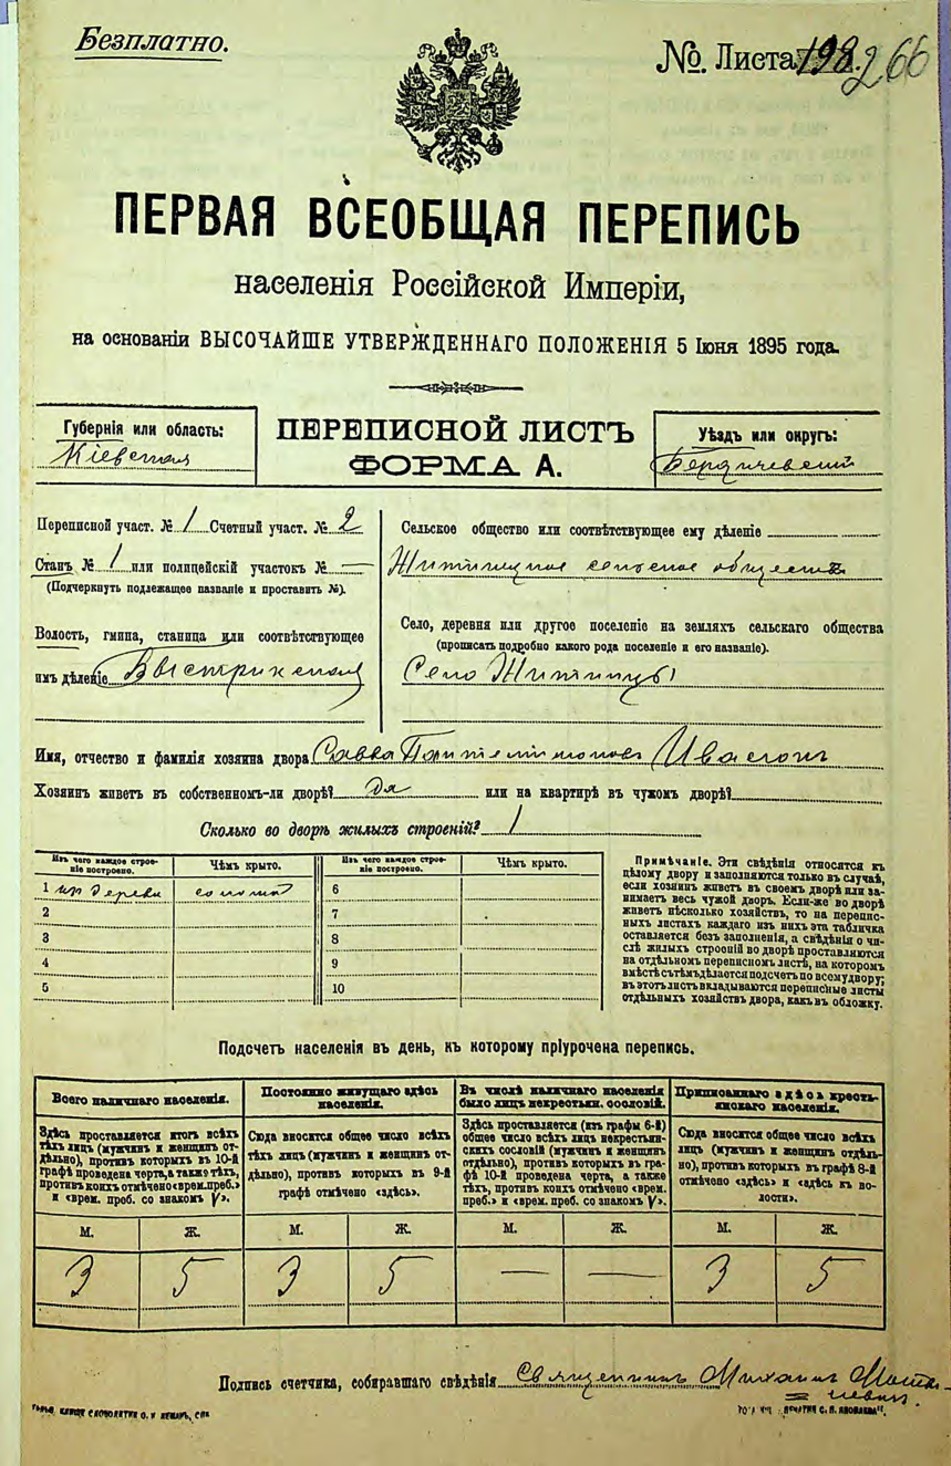 Безплатно.
№. Листа 198. 266
ПЕРВАЯ ВСЕОБЩАЯ ПЕРЕПИСЬ
населенія Россійской Имперіи,
на основаніи ВЫСОЧАЙШЕ УТВЕРЖДЕННАГО ПОЛОЖЕНІЯ 5 Іюня 1895 года.
Губернія или область:
Кіевская
ПЕРЕПИСНОЙ ЛИСТЪ
ФОРМА А.
Уѣздъ или округъ:
Бердичевскій
Переписной участ. № 1 Счетный участ. № 2
Станъ № 1 или полицейскій участокъ № —
(Подчеркнуть подлежащее названіе и проставить №).
Волость, гмина, станица или соотвѣтствующее
имъ дѣленіе Быстрикская
Сельское общество или соотвѣтствующее ему дѣленіе
Житницкое сельское общество
Село, деревня или другое поселеніе на земляхъ сельскаго общества
(прописать подробно какого рода поселеніе и его названіе).
Село Житинцы
Имя, отчество и фамилія хозяина двора Савва Пантелимоновъ
Хозяинъ живетъ въ собственномъ-ли дворѣ? да или на квартирѣ въ чужомъ дворѣ?
Сколько во дворѣ жилыхъ строеній? 1
Изъ чего каждое строе-
ніе построено.
Чѣмъ крыто.
Изъ чего каждое строе-
ніе построено.
Чѣмъ крыто.
1 изъ дерева соломой 6
2 7
3 8
4 9
5 10
Примѣчаніе. Эти свѣдѣнія относятся къ
цѣлому двору и заполняются только въ случаѣ,
если хозяинъ живетъ въ своемъ дворѣ или за-
нимаетъ весь чужой дворъ. Если-же во дворѣ
живетъ нѣсколько хозяйствъ, то на перепис-
ныхъ листахъ каждаго изъ нихъ эта табличка
оставляется безъ заполненія, а свѣдѣнія о чи-
слѣ жилыхъ строеній во дворѣ проставляются
на отдѣльномъ переписномъ листѣ, на которомъ
вмѣстѣ съ тѣмъ дѣлается подсчетъ по всему двору;
въ этотъ листъ вкладываются переписные листы
отдѣльныхъ хозяйствъ двора, какъ въ обложку.
Подсчетъ населенія въ день, къ которому пріурочена перепись.
Всего наличнаго населенія.
Здѣсь проставляется итогъ всѣхъ
тѣхъ лицъ (мужчинъ и женщинъ от-
дѣльно), противъ которыхъ въ 10-й
графѣ проведена черта, а также тѣхъ,
противъ коихъ отмѣчено «врем. преб.»
и «врем. преб. со знакомъ V».
Постоянно живущаго здѣсь
населенія.
Сюда вносится общее число всѣхъ
тѣхъ лицъ (мужчинъ и женщинъ от-
дѣльно), противъ которыхъ въ 9-й
графѣ отмѣчено «здѣсь».
Въ числѣ наличнаго населенія
было лицъ некрестьян. сословій.
Здѣсь проставляется (изъ графы 6-й)
общее число всѣхъ лицъ некрестьян-
скихъ сословій (мужчинъ и женщинъ
отдѣльно), противъ которыхъ въ гра-
фѣ 10-й проведена черта, а также
тѣхъ, противъ коихъ отмѣчено «врем.
преб.» и «врем. преб. со знакомъ V».
Приписаннаго здѣсь кресть-
янскаго населенія.
Сюда вносится общее число всѣхъ
лицъ (мужчинъ и женщинъ отдѣль-
но), противъ которыхъ въ графѣ 8-й
отмѣчено «здѣсь» и «здѣсь къ во-
лости».
М. Ж. М. Ж. М. Ж. М. Ж.
3 5 3 5 — — 3 5
Подпись счетчика, собиравшаго свѣдѣнія Священникъ Михаилъ